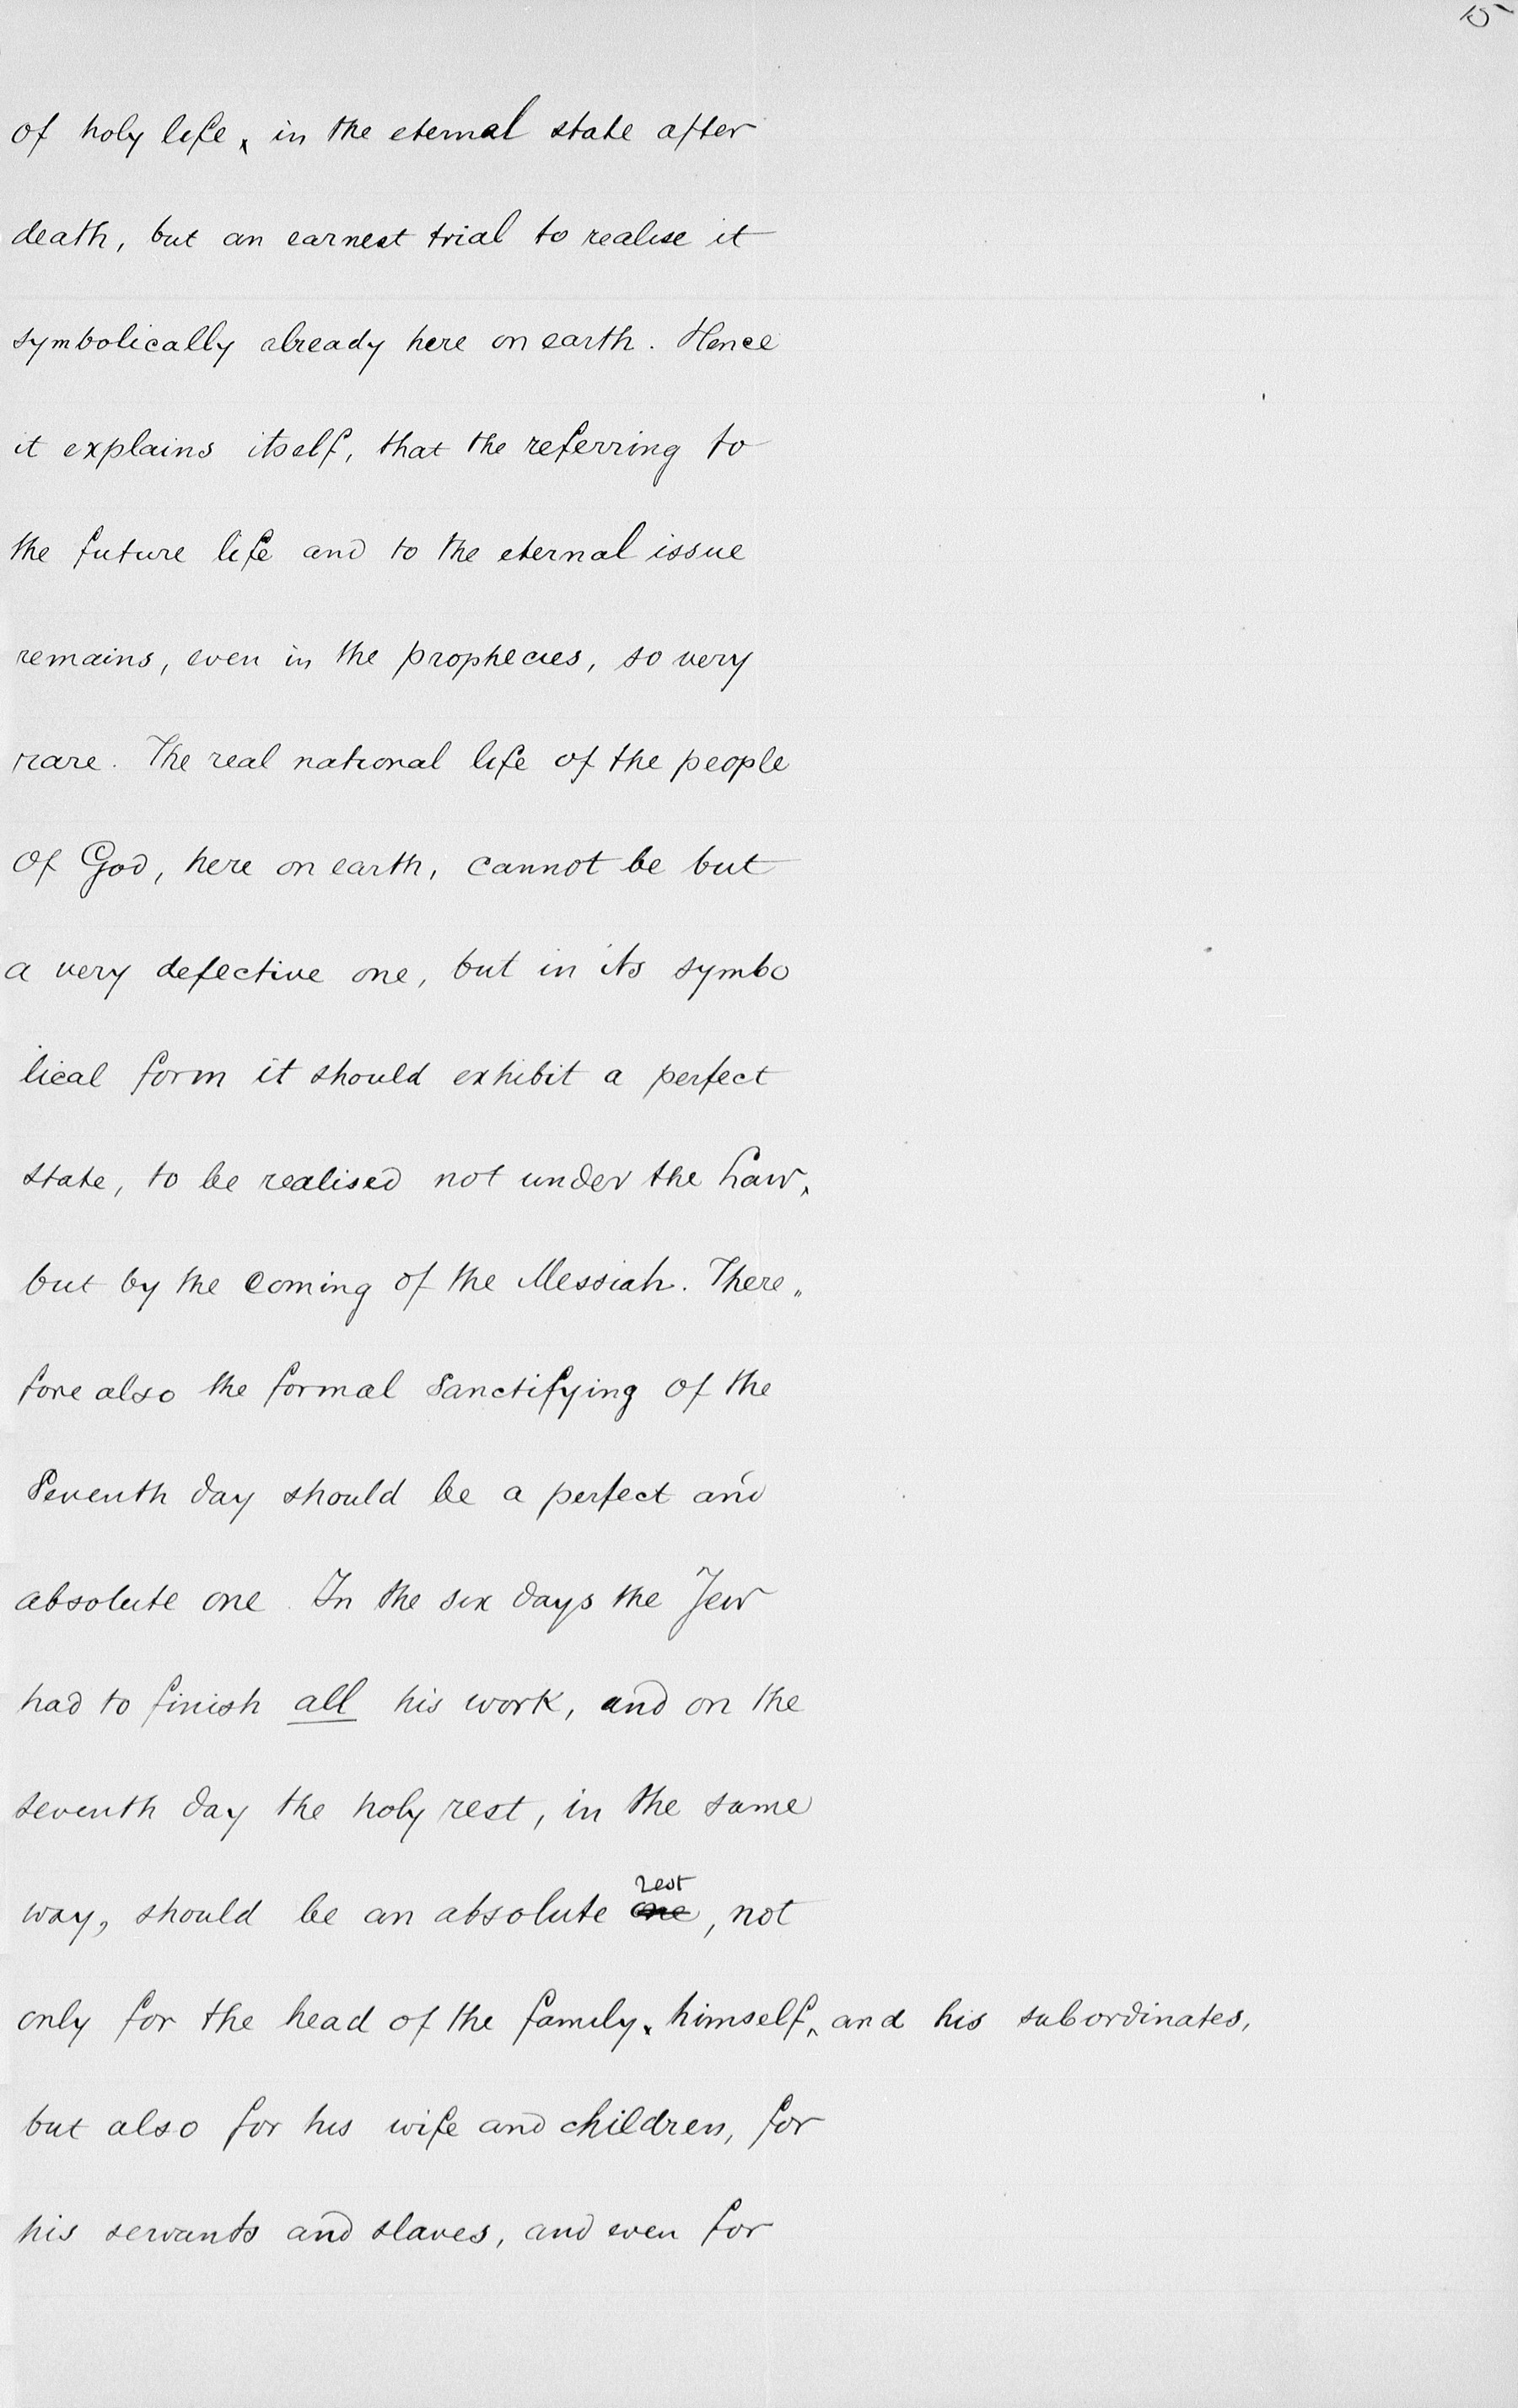 15
of holy life, in the eternal state after
death, but an earnest trial to realise it
symbolically already here on earth. Hence
it explains itself, that the referring to
the future life and to the eternal issue
remains, even in the prophecies, so very
rare. The real national life of the people
of God, here on earth, cannot be but
a very defective one, but in its symbo
lical form it should exhibit a perfect
state, to be realised not under the Law,
but by the coming of the Messiah. There„
fore also the formal Sanctifying of the
Seventh day should be a perfect and
absolute one. In the six days the Jew
had to finish all his work, and on the
seventh day the holy rest, in the same
rest
way, should be an absolute one, not
only for the head of the family, himself, and his subordinates,
but also for his wife and children, for
his servants and slaves, and even for